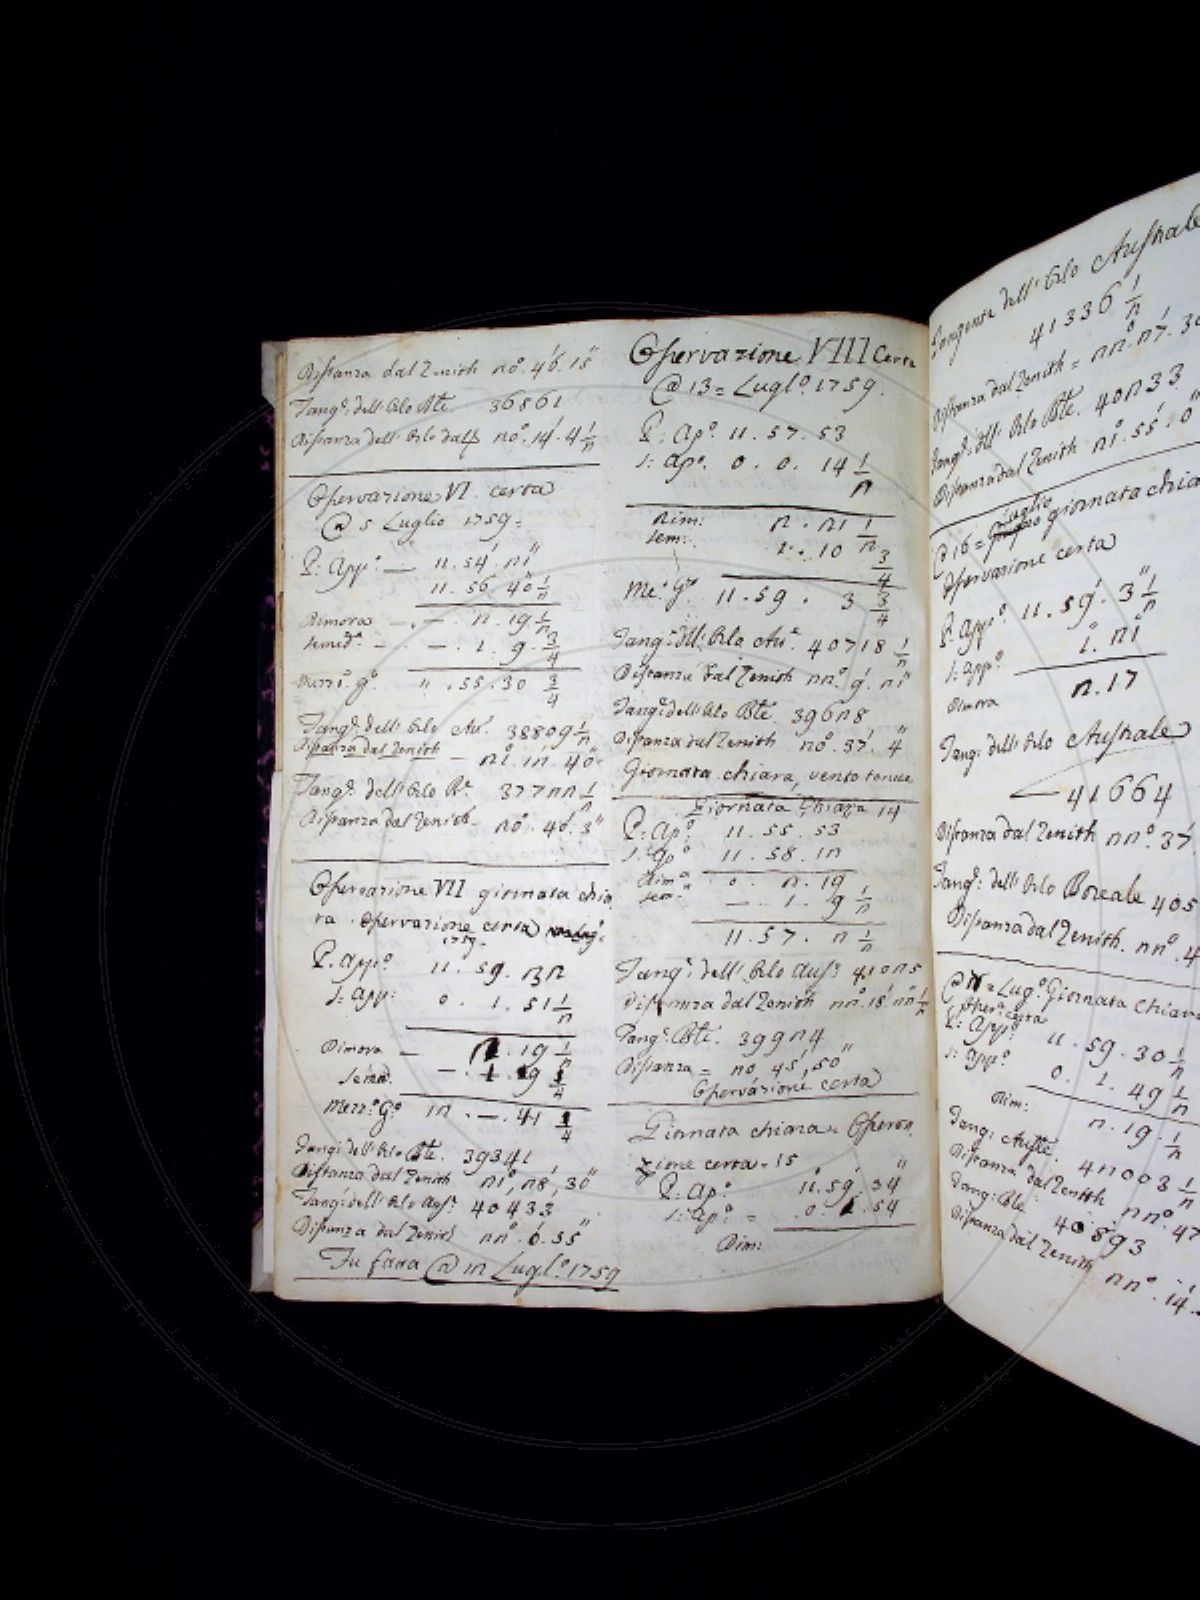 Distanza dal Zenith 20°. 46'. 15"
Tang.e dell' Orlo Bte. 36861
Distanza dell' Orlo dal Z 20°. 14'. 4 1/2
Osservazione VI. certa
@ 5 Luglio 1759 =
P: App.o — 11. 54'. 21"
11. 56. 40 1/2
Dimora — . — . 2. 19 1/2
Semid.a — . — . 1. 9. 3/4
Mezzo g.o 11. 55. 30 3/4
Tang.e dell' Orlo Aus. 38809 1/2
Distanza dal Zenith — 21°. 12'. 40"
Tang.e dell' Orlo B.e 37722 1/2
Distanza dal Zenith. 20°. 40'. 3"
Osservazione VII giornata chia
ra. Osservazione certa
1759.
P. app.o 11. 59. 32
S: App: 0. 1. 51 1/2
Dimora — 2. 19 1/2
Semid. — . 1. 9 3/4
Mezz.o G.o 12. — . 41 3/4
Tang: dell' Orlo Bte. 39341
Distanza dal Zenith 21°, 28', 30"
Tang: dell' Orlo Aus. 40433
Distanza dal Zenith 22°. 0'. 55"
Fu fatta @ 12 Lugl.o 1759
Osservazione VIII Certa
@ 13 = Lugl.o 1759.
P: Ap.o 11. 57. 53
S: Ap.o. 0. 0. 14 1/2
Dim: 2. 21 1/2
Sem: 1. 10 3/4
Me.o G.o 11. 59. 3 3/4
Tang.e dell' Orlo Aus. 40718 1/2
Distanza dal Zenith 22°. 9'. 21"
Tang.e dell' Orlo Bte. 39628
Distanza dal Zenith 20°. 37'. 4"
Giornata chiara, vento tenue
Giornata Chiara 14
P: Ap.o 11. 55. 53
S: Ap.o 11. 58. 12
Dim.a 0. 2. 19
Sem. — . 1. 9 1/2
11. 57. 2 1/2
Tang.e dell' Orlo Aus. 41025
Distanza dal Zenith 22°. 18'. 22" 1/2
Tang.e Bte. 39924
Distanza = 20 45', 50"
Osservazione certa
Giornata chiara = Osserva
zione certa = 15
P: Ap.o 11. 59' 34"
S: Ap.o = .0. 1. 54
Dim:
Tangente dell' Orlo Australe
41336 1/2
Distanza dal Zenith = 22°. 27'.
Tang.e dell' Orlo Bte. 40233
Distanza dal Zenith 21°. 55'. 0"
Luglio
@ 16 = giornata chia
Osservazione certa
P. App.o 11. 59'. 3" 1/2
S: App.o 1. 21
Dimora 2. 17
Tang: dell' Orlo Australe
41664
Distanza dal Zenith 22°. 37'
Tang.e dell' Orlo Boreale 405
Distanza dal Zenith. 22°. 4
Lug.o Giornata chiara
Osser. certa
P: App.o 11. 59. 30 1/2
S: App.o 0. 1. 49 1/2
Dim: 2. 19. 1/2
Tang: Austle. 42003 1/2
Distanza dal Zenith 22°. 47
Tang: Ble. 40893
Distanza dal Zenith 22°. 14